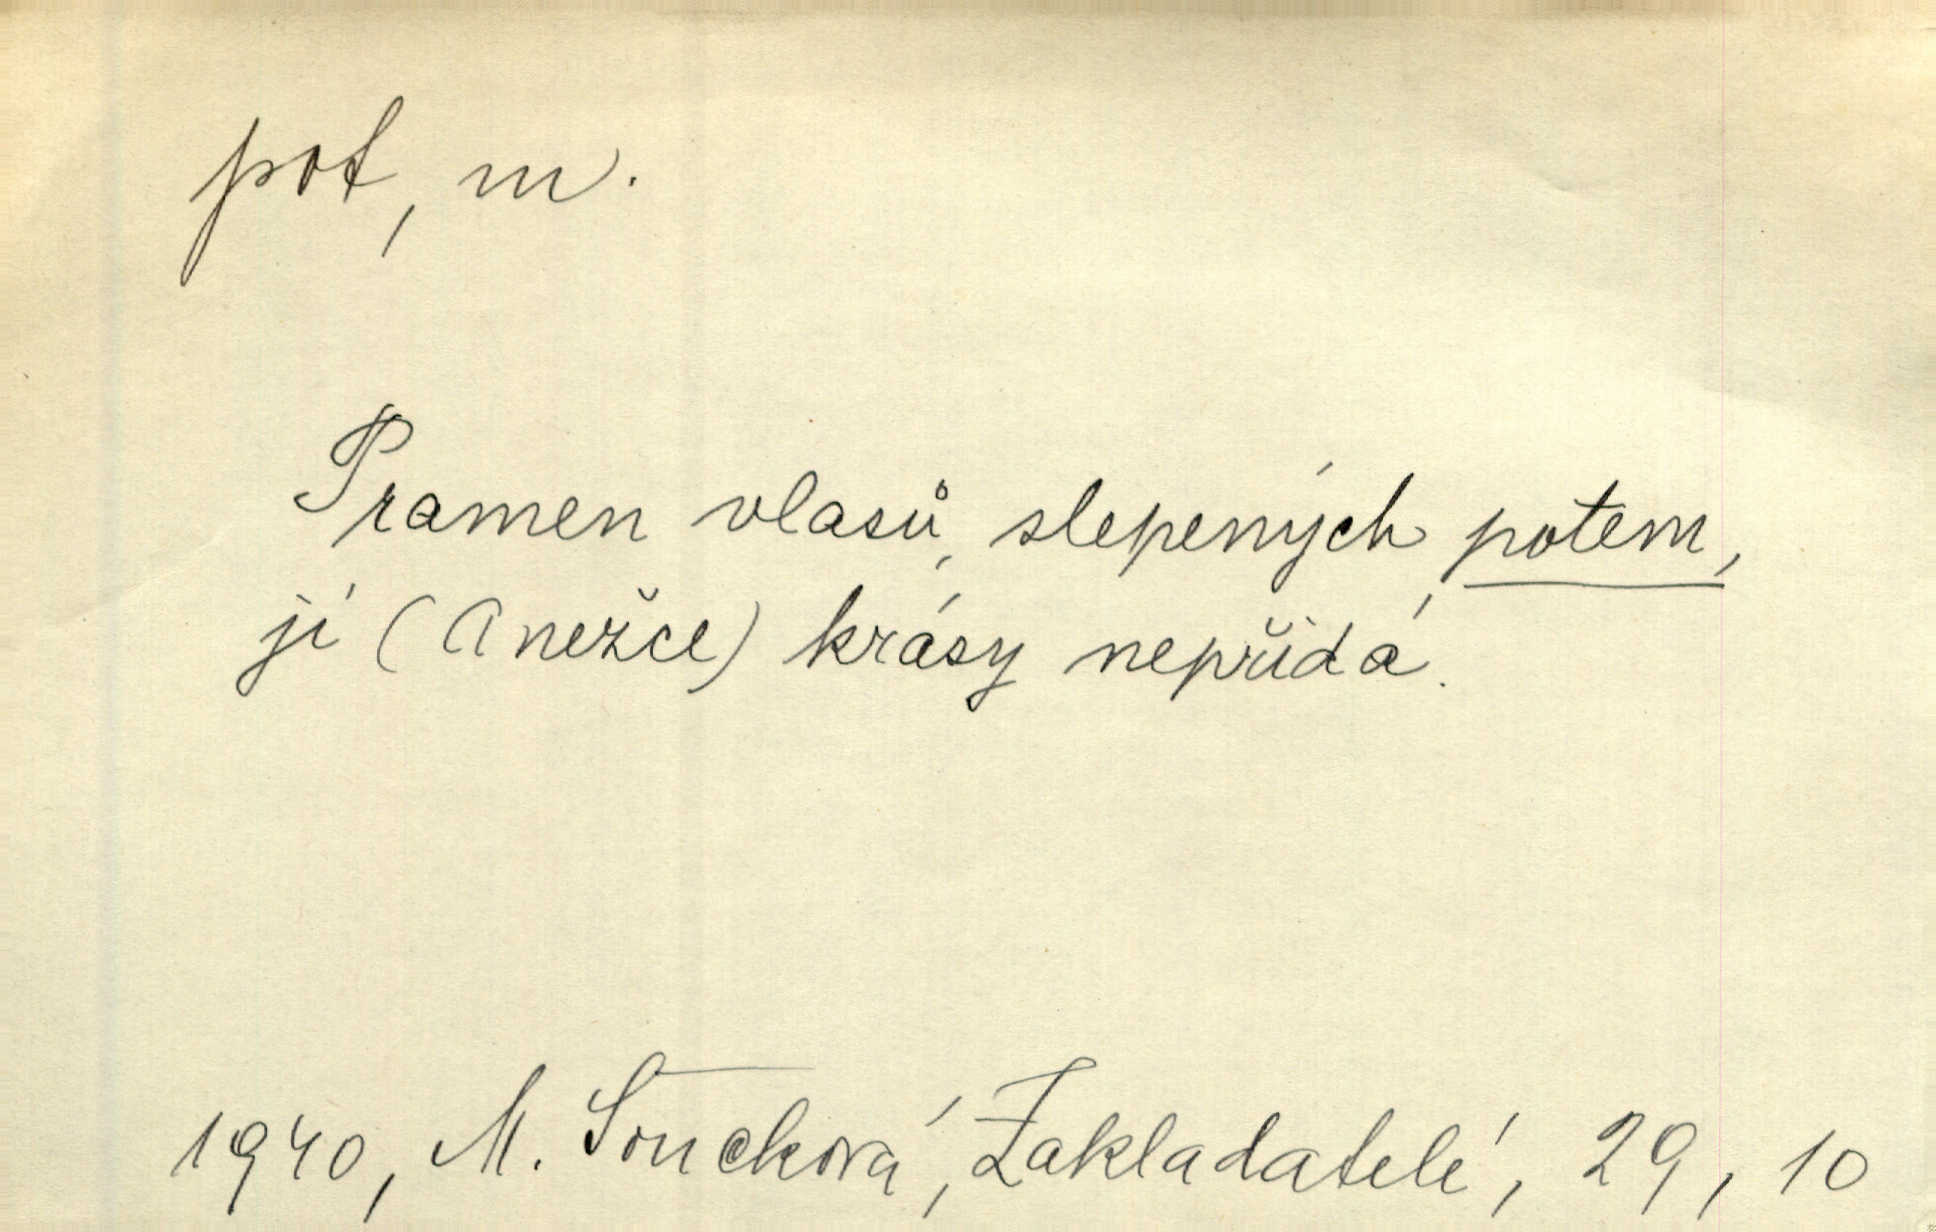 pot, m.
Pramen vlasů, slepených potem,
jí (Anežce) krásy nepřidá.
1940, M. Součková, Zakladatelé, 29, 10